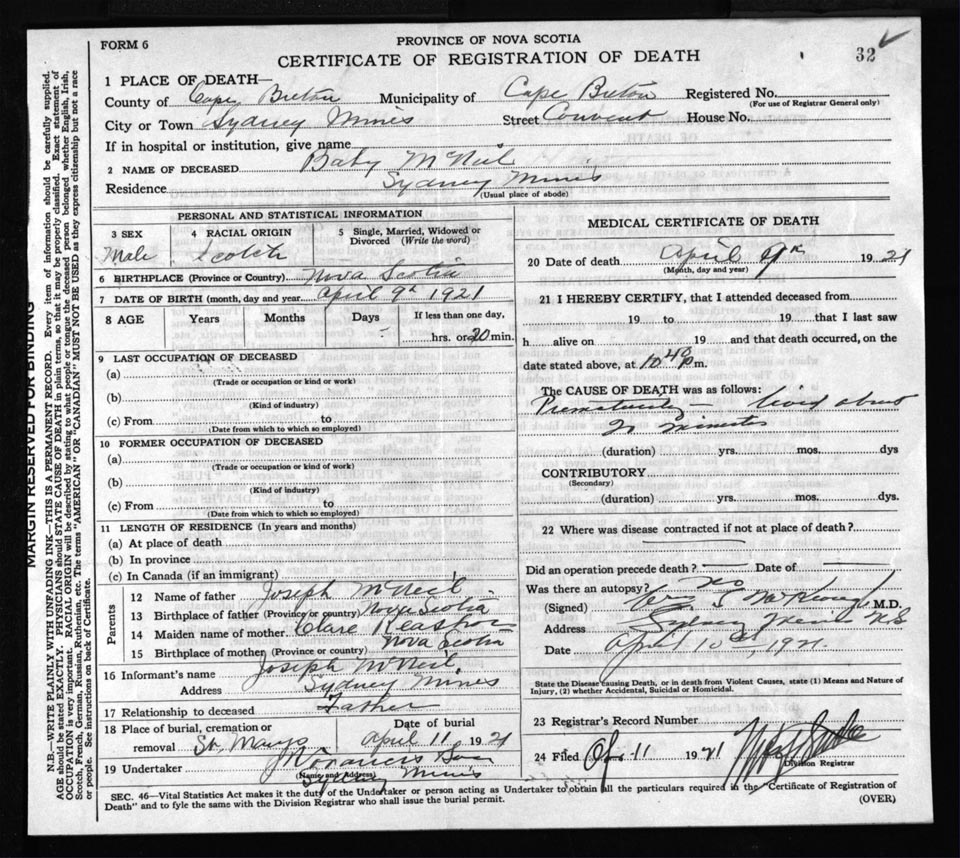 FORM 6
PROVINCE OF NOVA SCOTIA
32
CERTIFICATE OF REGISTRATION OF DEATH
1 PLACE OF DEATH—
County of Cape Breton Municipality of Cape Breton Registered No.
(For use of Registrar General only)
City or Town Sydney Mines Street Convent House No.
If in hospital or institution, give name
2 NAME OF DECEASED Baby McNeil
Residence Sydney Mines
(Usual place of abode)
PERSONAL AND STATISTICAL INFORMATION
3 SEX 4 RACIAL ORIGIN 5 Single, Married, Widowed or Divorced (Write the word)
Male Scotch
6 BIRTHPLACE (Province or Country) Nova Scotia
7 DATE OF BIRTH (month, day and year) April 9th 1921
8 AGE Years Months Days If less than one day,
hrs. or 20 min.
9 LAST OCCUPATION OF DECEASED
(a)
(Trade or occupation or kind or work)
(b)
(Kind of industry)
(c) From to
(Date from which to which so employed)
10 FORMER OCCUPATION OF DECEASED
(a)
(Trade or occupation or kind of work)
(b)
(Kind of industry)
(c) From to
(Date from which to which so employed)
11 LENGTH OF RESIDENCE (In years and months)
(a) At place of death
(b) In province
(c) In Canada (if an immigrant)
Parents
12 Name of father Joseph McNeil
13 Birthplace of father (Province or country) Nova Scotia
14 Maiden name of mother Clare
15 Birthplace of mother (Province or country) Nova Scotia
16 Informant's name Joseph McNeil
Address Sydney Mines
17 Relationship to deceased Father
18 Place of burial, cremation or removal St. Marys Date of burial April 11 1921
19 Undertaker
(Name and Address) Sydney Mines
MEDICAL CERTIFICATE OF DEATH
20 Date of death April 9th 1921
(Month, day and year)
21 I HEREBY CERTIFY, that I attended deceased from
19 to 19 that I last saw
h alive on 19 and that death occurred, on the
date stated above, at 10 40 P m.
The CAUSE OF DEATH was as follows:
Prematurity lived about
20 minutes
(duration) yrs. mos. dys
CONTRIBUTORY
(Secondary)
(duration) yrs. mos. dys.
22 Where was disease contracted if not at place of death?
Did an operation precede death? Date of
Was there an autopsy? No
(Signed) M.D.
Address Sydney Mines N.S
Date April 10th, 1921.
State the Disease causing Death, or in death from Violent Causes, state (1) Means and Nature of
Injury, (2) whether Accidental, Suicidal or Homicidal.
23 Registrar's Record Number
24 Filed Ap. 11 1921
Division Registrar
SEC. 46—Vital Statistics Act makes it the duty of the Undertaker or person acting as Undertaker to obtain all the particulars required in the "Certificate of Registration of
Death" and to fyle the same with the Division Registrar who shall issue the burial permit.
(OVER)
MARGIN RESERVED FOR BINDING
N.B.—WRITE PLAINLY WITH UNFADING INK—THIS IS A PERMANENT RECORD. Every item of information should be carefully supplied.
AGE should be stated EXACTLY. PHYSICIANS should STATE CAUSE OF DEATH in plain terms, so that it may be properly classified. Exact statement of
OCCUPATION is very important. RACIAL ORIGIN will be described by stating to what people or tongue the deceased person belonged whether English, Irish,
Scotch, French, German, Russian, Ruthenian, etc. The terms "AMERICAN" OR "CANADIAN" MUST NOT BE USED as they express citizenship but not a race
or people. See instructions on back of Certificate.